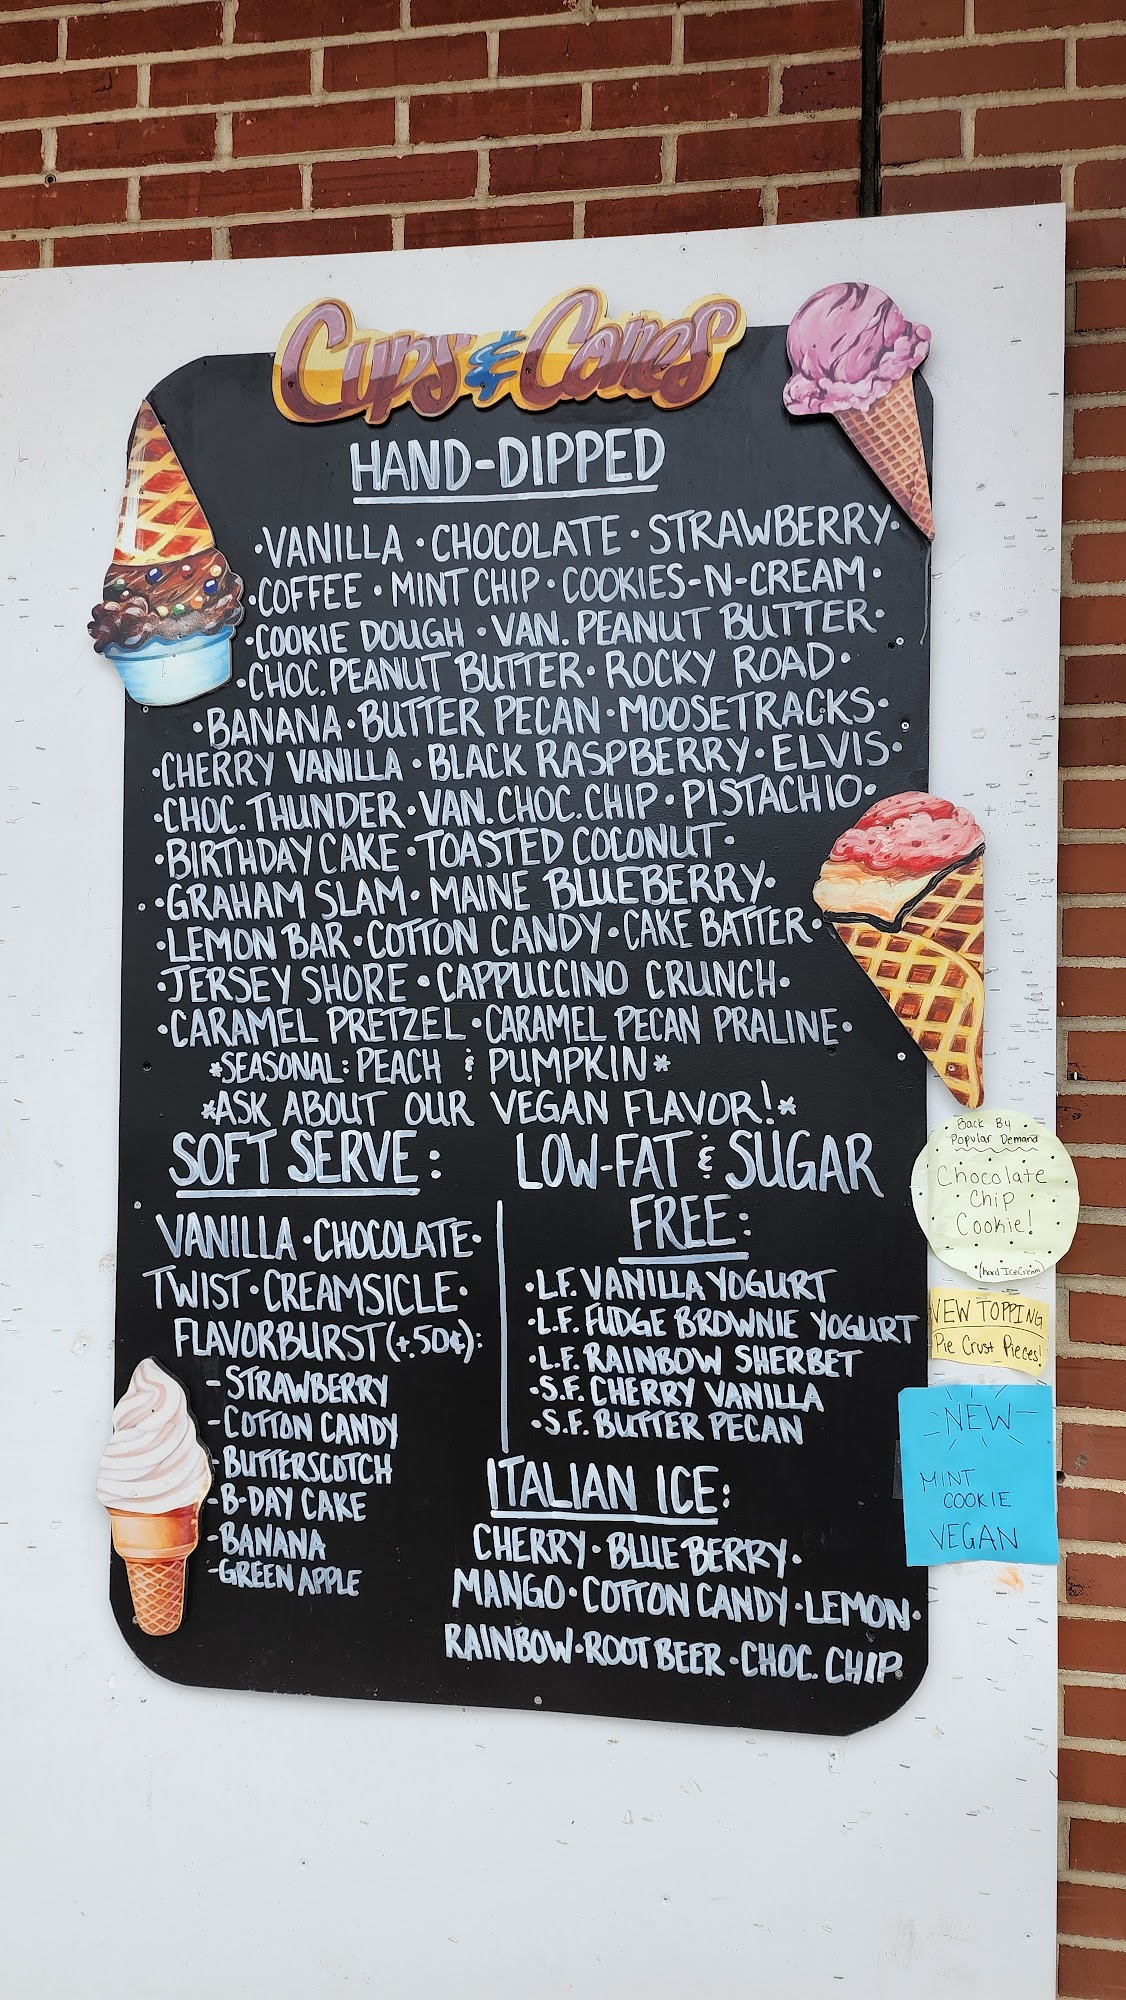 Cups & Cones
HAND-DIPPED
•VANILLA •CHOCOLATE •STRAWBERRY•
•COFFEE • MINT CHIP • COOKIES-N-CREAM •
•COOKIE DOUGH •VAN. PEANUT BUTTER•
•CHOC. PEANUT BUTTER • ROCKY ROAD•
•BANANA•BUTTER PECAN•MOOSETRACKS•
•CHERRY VANILLA • BLACK RASPBERRY• ELVIS•
•CHOC. THUNDER•VAN. CHOC. CHIP • PISTACHIO•
•BIRTHDAY CAKE •TOASTED COCONUT•
•GRAHAM SLAM• MAINE BLUEBERRY•
•LEMON BAR•COTTON CANDY•CAKE BATTER•
•JERSEY SHORE •CAPPUCCINO CRUNCH•
•CARAMEL PRETZEL•CARAMEL PECAN PRALINE•
*SEASONAL: PEACH & PUMPKIN*
*ASK ABOUT OUR VEGAN FLAVOR!*
SOFT SERVE:
VANILLA •CHOCOLATE•
TWIST•CREAMSICLE•
FLAVORBURST (+.50¢):
- STRAWBERRY
-COTTON CANDY
-BUTTERSCOTCH
-B-DAY CAKE
-BANANA
-GREEN APPLE
LOW-FAT & SUGAR
FREE:
•L.F. VANILLA YOGURT
•L.F. FUDGE BROWNIE YOGURT
•L.F. RAINBOW SHERBET
•S.F. CHERRY VANILLA
•S.F. BUTTER PECAN
ITALIAN ICE:
CHERRY•BLUE BERRY•
MANGO•COTTON CANDY •LEMON•
RAINBOW•ROOT BEER •CHOC. CHIP
Back By
Popular Demand
Chocolate
Chip
Cookie!
*(hard Ice Cream)
NEW TOPPING
Pie Crust Pieces!
NEW
MINT
COOKIE
VEGAN